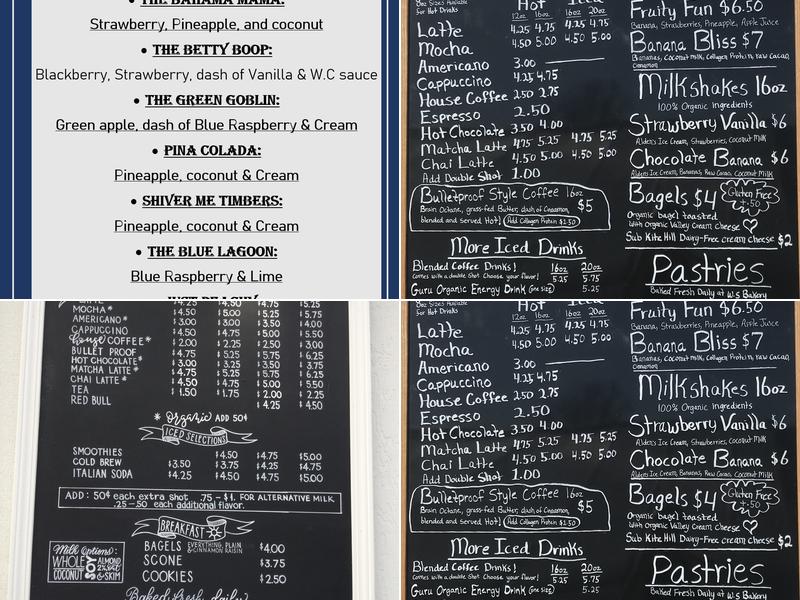 THE BAHAMA MAMA:
Strawberry, Pineapple, and coconut
• THE BETTY BOOP:
Blackberry, Strawberry, dash of Vanilla & W.C sauce
• THE GREEN GOBLIN:
Green apple, dash of Blue Raspberry & Cream
• PINA COLADA:
Pineapple, coconut & Cream
• SHIVER ME TIMBERS:
Pineapple, coconut & Cream
• THE BLUE LAGOON:
Blue Raspberry & Lime
8oz Sizes Available
for Hot Drinks
Hot Iced
12oz 16oz 16oz 20oz
Latte 4.25 4.75 4.25 4.75
Mocha 4.50 5.00 4.50 5.00
Americano 3.00
Cappuccino 4.25 4.75
House Coffee 2.50 2.75
Espresso 2.50
Hot Chocolate 3.50 4.00
Matcha Latte 4.75 5.25 4.75 5.25
Chai Latte 4.50 5.00 4.50 5.00
Add Double Shot 1.00
Bulletproof Style Coffee 16oz
Brain Octane, grass-fed Butter, dash of Cinnamon, $5
blended and served Hot! Add Collagen Protein $1.50
More Iced Drinks
Blended Coffee Drinks! 16oz 20oz
comes with a double Shot. Choose your flavor! 5.25 5.75
Guru Organic Energy Drink (one size) 5.25
Fruity Fun $6.50
Bananas, Strawberries, Pineapple, Apple Juice
Banana Bliss $7
Bananas, Coconut Milk, Collagen Protein, Raw Cacao,
Cinnamon
Milkshakes 16oz
100% Organic Ingredients
Strawberry Vanilla $6
Alden's Ice Cream, Strawberries, Coconut Milk
Chocolate Banana $6
Alden's Ice Cream, Bananas, Raw Cacao, Coconut Milk
Bagels $4 Gluten Free
+.50
Organic bagel toasted
with Organic Valley Cream Cheese
Sub Kite Hill Dairy-Free cream cheese $2
Pastries
Baked Fresh Daily at W.S Bakery
LATTE $4.25 $4.50 $4.75 $5.25
MOCHA* $4.50 $5.00 $5.25 $5.75
AMERICANO* $3.00 $3.00 $3.50 $4.00
CAPPUCCINO $4.50 $4.75 $5.00 $5.50
House COFFEE* $2.00 $2.25 $2.50 $3.00
BULLET PROOF $4.75 $5.25 $5.75 $6.25
HOT CHOCOLATE* $3.00 $3.25 $3.50 $3.75
MATCHA LATTE* $4.75 $5.25 $5.75 $6.25
CHAI LATTE* $4.50 $4.75 $5.00 $5.50
TEA $1.50 $1.75 $2.00 $2.25
RED BULL $4.25 $4.50
* Organic ADD 50¢
ICED SELECTIONS
SMOOTHIES $4.50 $4.75 $5.00
COLD BREW $3.50 $3.75 $4.25 $4.75
ITALIAN SODA $4.25 $4.50 $4.75 $5.00
ADD: 50¢ each extra shot .75 – $1. FOR ALTERNATIVE MILK
.25-.50 each additional flavor.
BREAKFAST
Milk Options:
WHOLE SOY ALMOND
2% H&H
COCONUT & SKIM
BAGELS EVERYTHING, PLAIN & CINNAMON RAISIN $4.00
SCONE $3.75
COOKIES $2.50
Baked fresh daily
8oz Sizes Available
for Hot Drinks
Hot Iced
12oz 16oz 16oz 20oz
Latte 4.25 4.75 4.25 4.75
Mocha 4.50 5.00 4.50 5.00
Americano 3.00
Cappuccino 4.25 4.75
House Coffee 2.50 2.75
Espresso 2.50
Hot Chocolate 3.50 4.00
Matcha Latte 4.75 5.25 4.75 5.25
Chai Latte 4.50 5.00 4.50 5.00
Add Double Shot 1.00
Bulletproof Style Coffee 16oz
Brain Octane, grass-fed Butter, dash of Cinnamon, $5
blended and served Hot! Add Collagen Protein $1.50
More Iced Drinks
Blended Coffee Drinks! 16oz 20oz
comes with a double Shot. Choose your flavor! 5.25 5.75
Guru Organic Energy Drink (one size) 5.25
Fruity Fun $6.50
Bananas, Strawberries, Pineapple, Apple Juice
Banana Bliss $7
Bananas, Coconut Milk, Collagen Protein, Raw Cacao,
Cinnamon
Milkshakes 16oz
100% Organic Ingredients
Strawberry Vanilla $6
Alden's Ice Cream, Strawberries, Coconut Milk
Chocolate Banana $6
Alden's Ice Cream, Bananas, Raw Cacao, Coconut Milk
Bagels $4 Gluten Free
+.50
Organic bagel toasted
with Organic Valley Cream Cheese
Sub Kite Hill Dairy-Free cream cheese $2
Pastries
Baked Fresh Daily at W.S Bakery